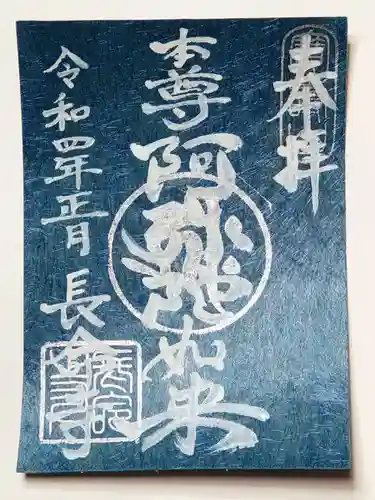 奉拝
本尊阿弥陀如来
令和四年正月 長念寺